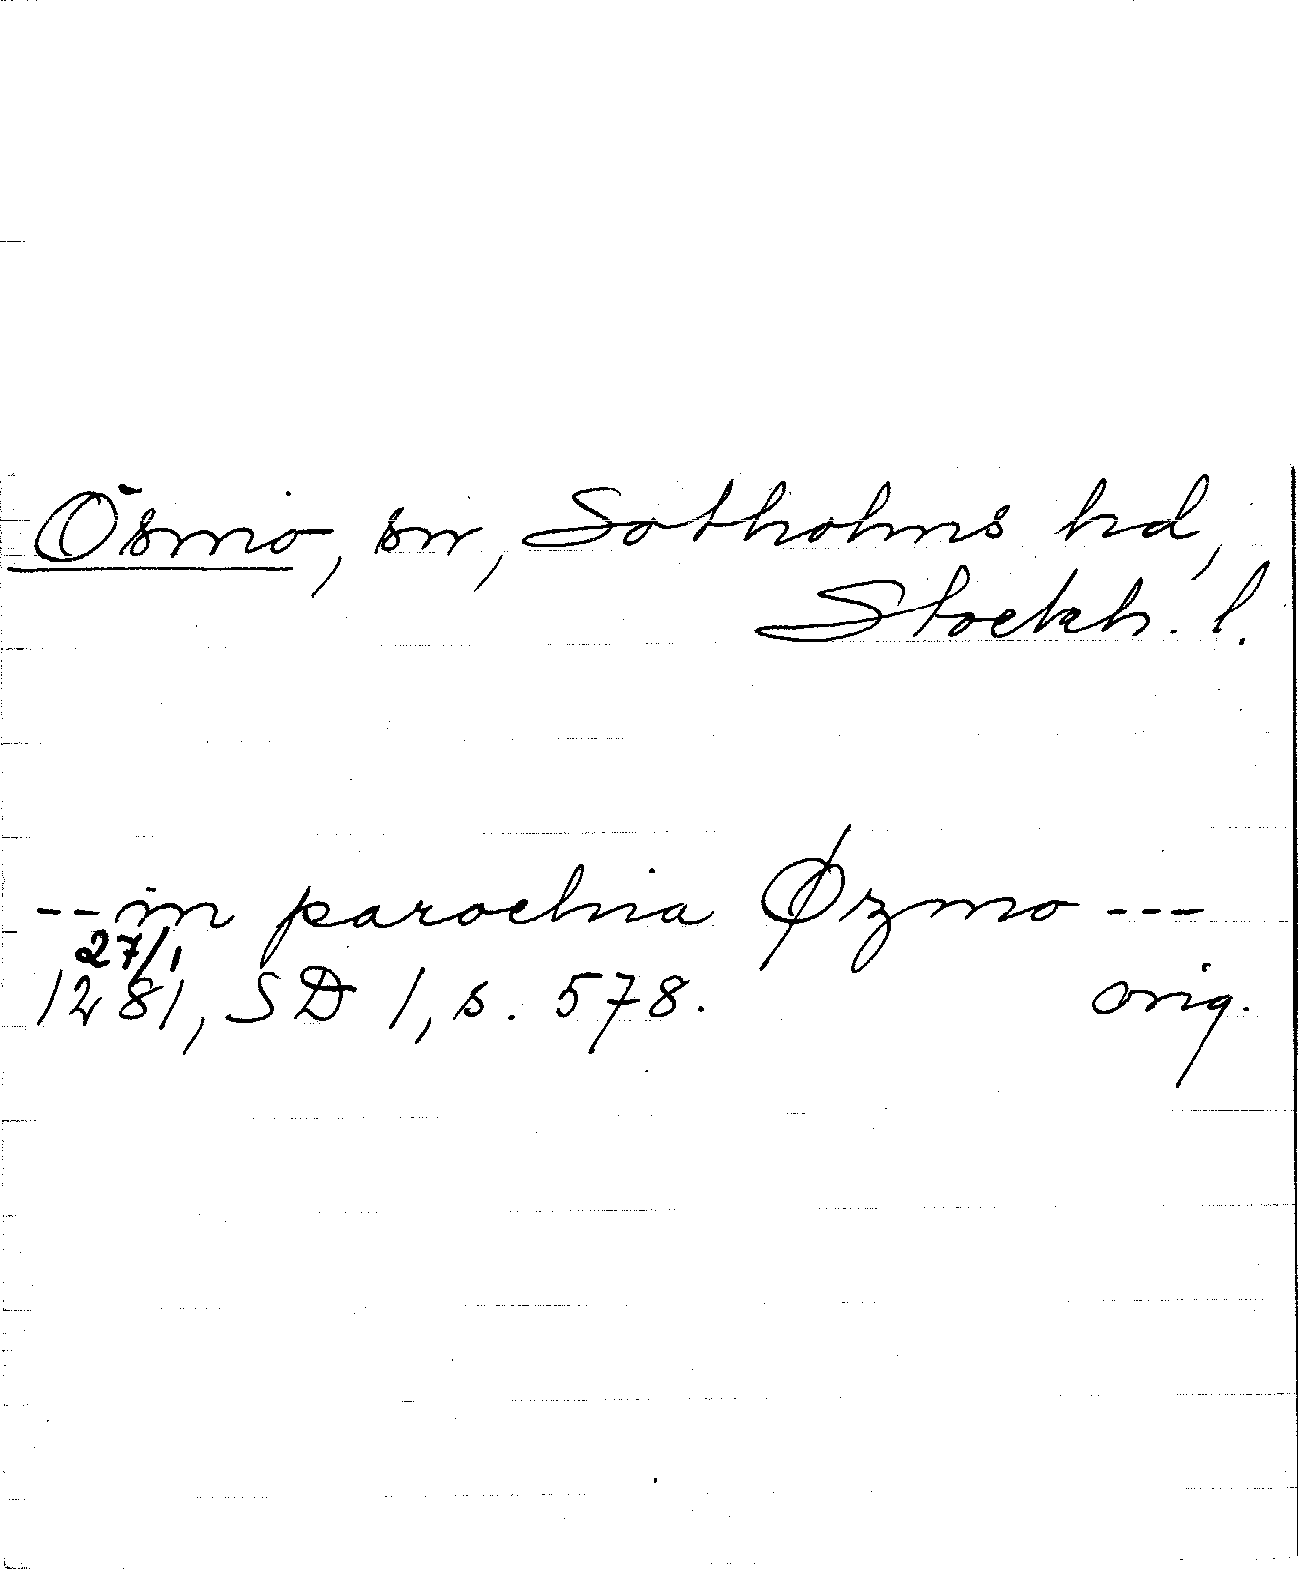 Ösmo, sn, Sotholms hd,
Stockh. l.
-- in parochia Øzmo ---
27/1
1281, SD 1, s. 578. orig.